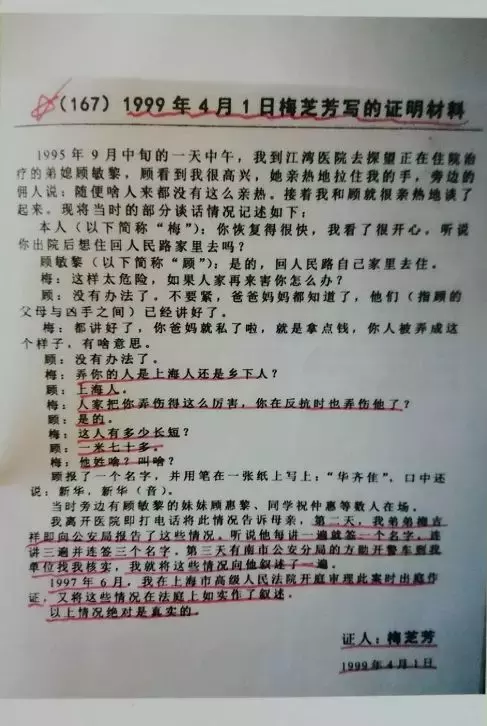 (167) 1999年4月1日梅芝芳写的证明材料
1995年9月中旬的一天中午，我到江湾医院去探望正在住院治
疗的弟媳顾敏黎，顾看到我很高兴，她亲热地拉住我的手，旁边的
佣人说：随便啥人来都没有这么亲热。接着我和顾就很亲热地谈了
起来。现将当时的部分谈话情况记述如下：
本人（以下简称“梅”）：你恢复得很快，我看了很开心。听说
你出院后想住回人民路家里去吗？
顾敏黎（以下简称“顾”）：是的，回人民路自己家里去住。
梅：这样太危险，如果人家再来害你怎么办？
顾：没有办法了。不要紧，爸爸妈妈都知道了，他们（指顾的
父母与凶手之间）已经讲好了。
梅：都讲好了，你爸妈就私了啦，就是拿点钱，你人被弄成这
个样子，有啥意思。
顾：没有办法了。
梅：弄你的人是上海人还是乡下人？
顾：上海人。
梅：人家把你弄伤得这么厉害，你在反抗时也弄伤他了？
顾：是的。
梅：这人有多少长短？
顾：一米七十多。
梅：他姓啥？叫啥？
顾报了一个名字，并用笔在一张纸上写上：“华齐佳”，口中还
说：新华，新华（音）。
当时旁边有顾敏黎的妹妹顾惠黎、同学祝仲惠等数人在场。
我离开医院即打电话将此情况告诉母亲，第二天，我弟弟梅吉
祥即向公安局报告了这些情况。听说他每讲一遍就签一个名字，连
讲三遍并连签三个名字。第三天有南市公安分局的方勋开警车到我
单位找我核实，我就将这些情况向他叙述了一遍。
1997年6月，我在上海市高级人民法院开庭审理此案时出庭作
证，又将这些情况在法庭上如实作了叙述。
以上情况绝对是真实的
证人：梅芝芳
1999年4月1日